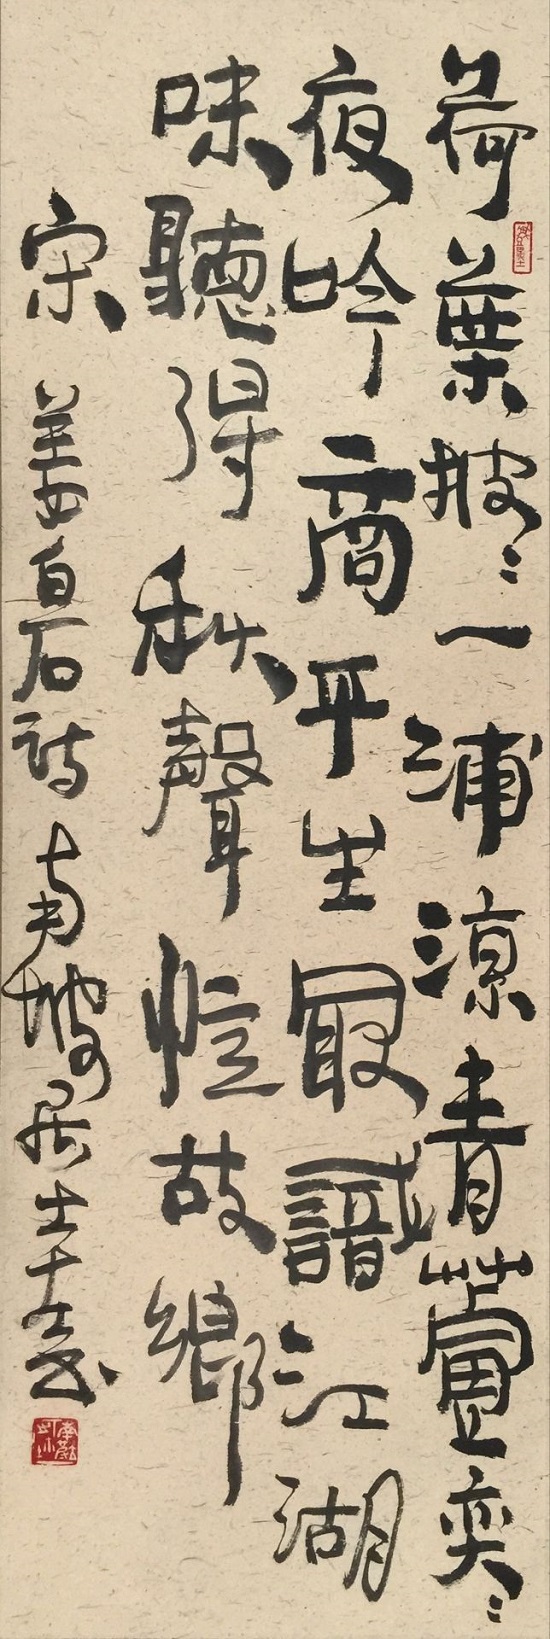 荷葉披〻一浦涼青蘆奕〻
夜吟商平生最識江湖
味聽得秋聲憶故鄉
宋 姜白石詩 南坡居士